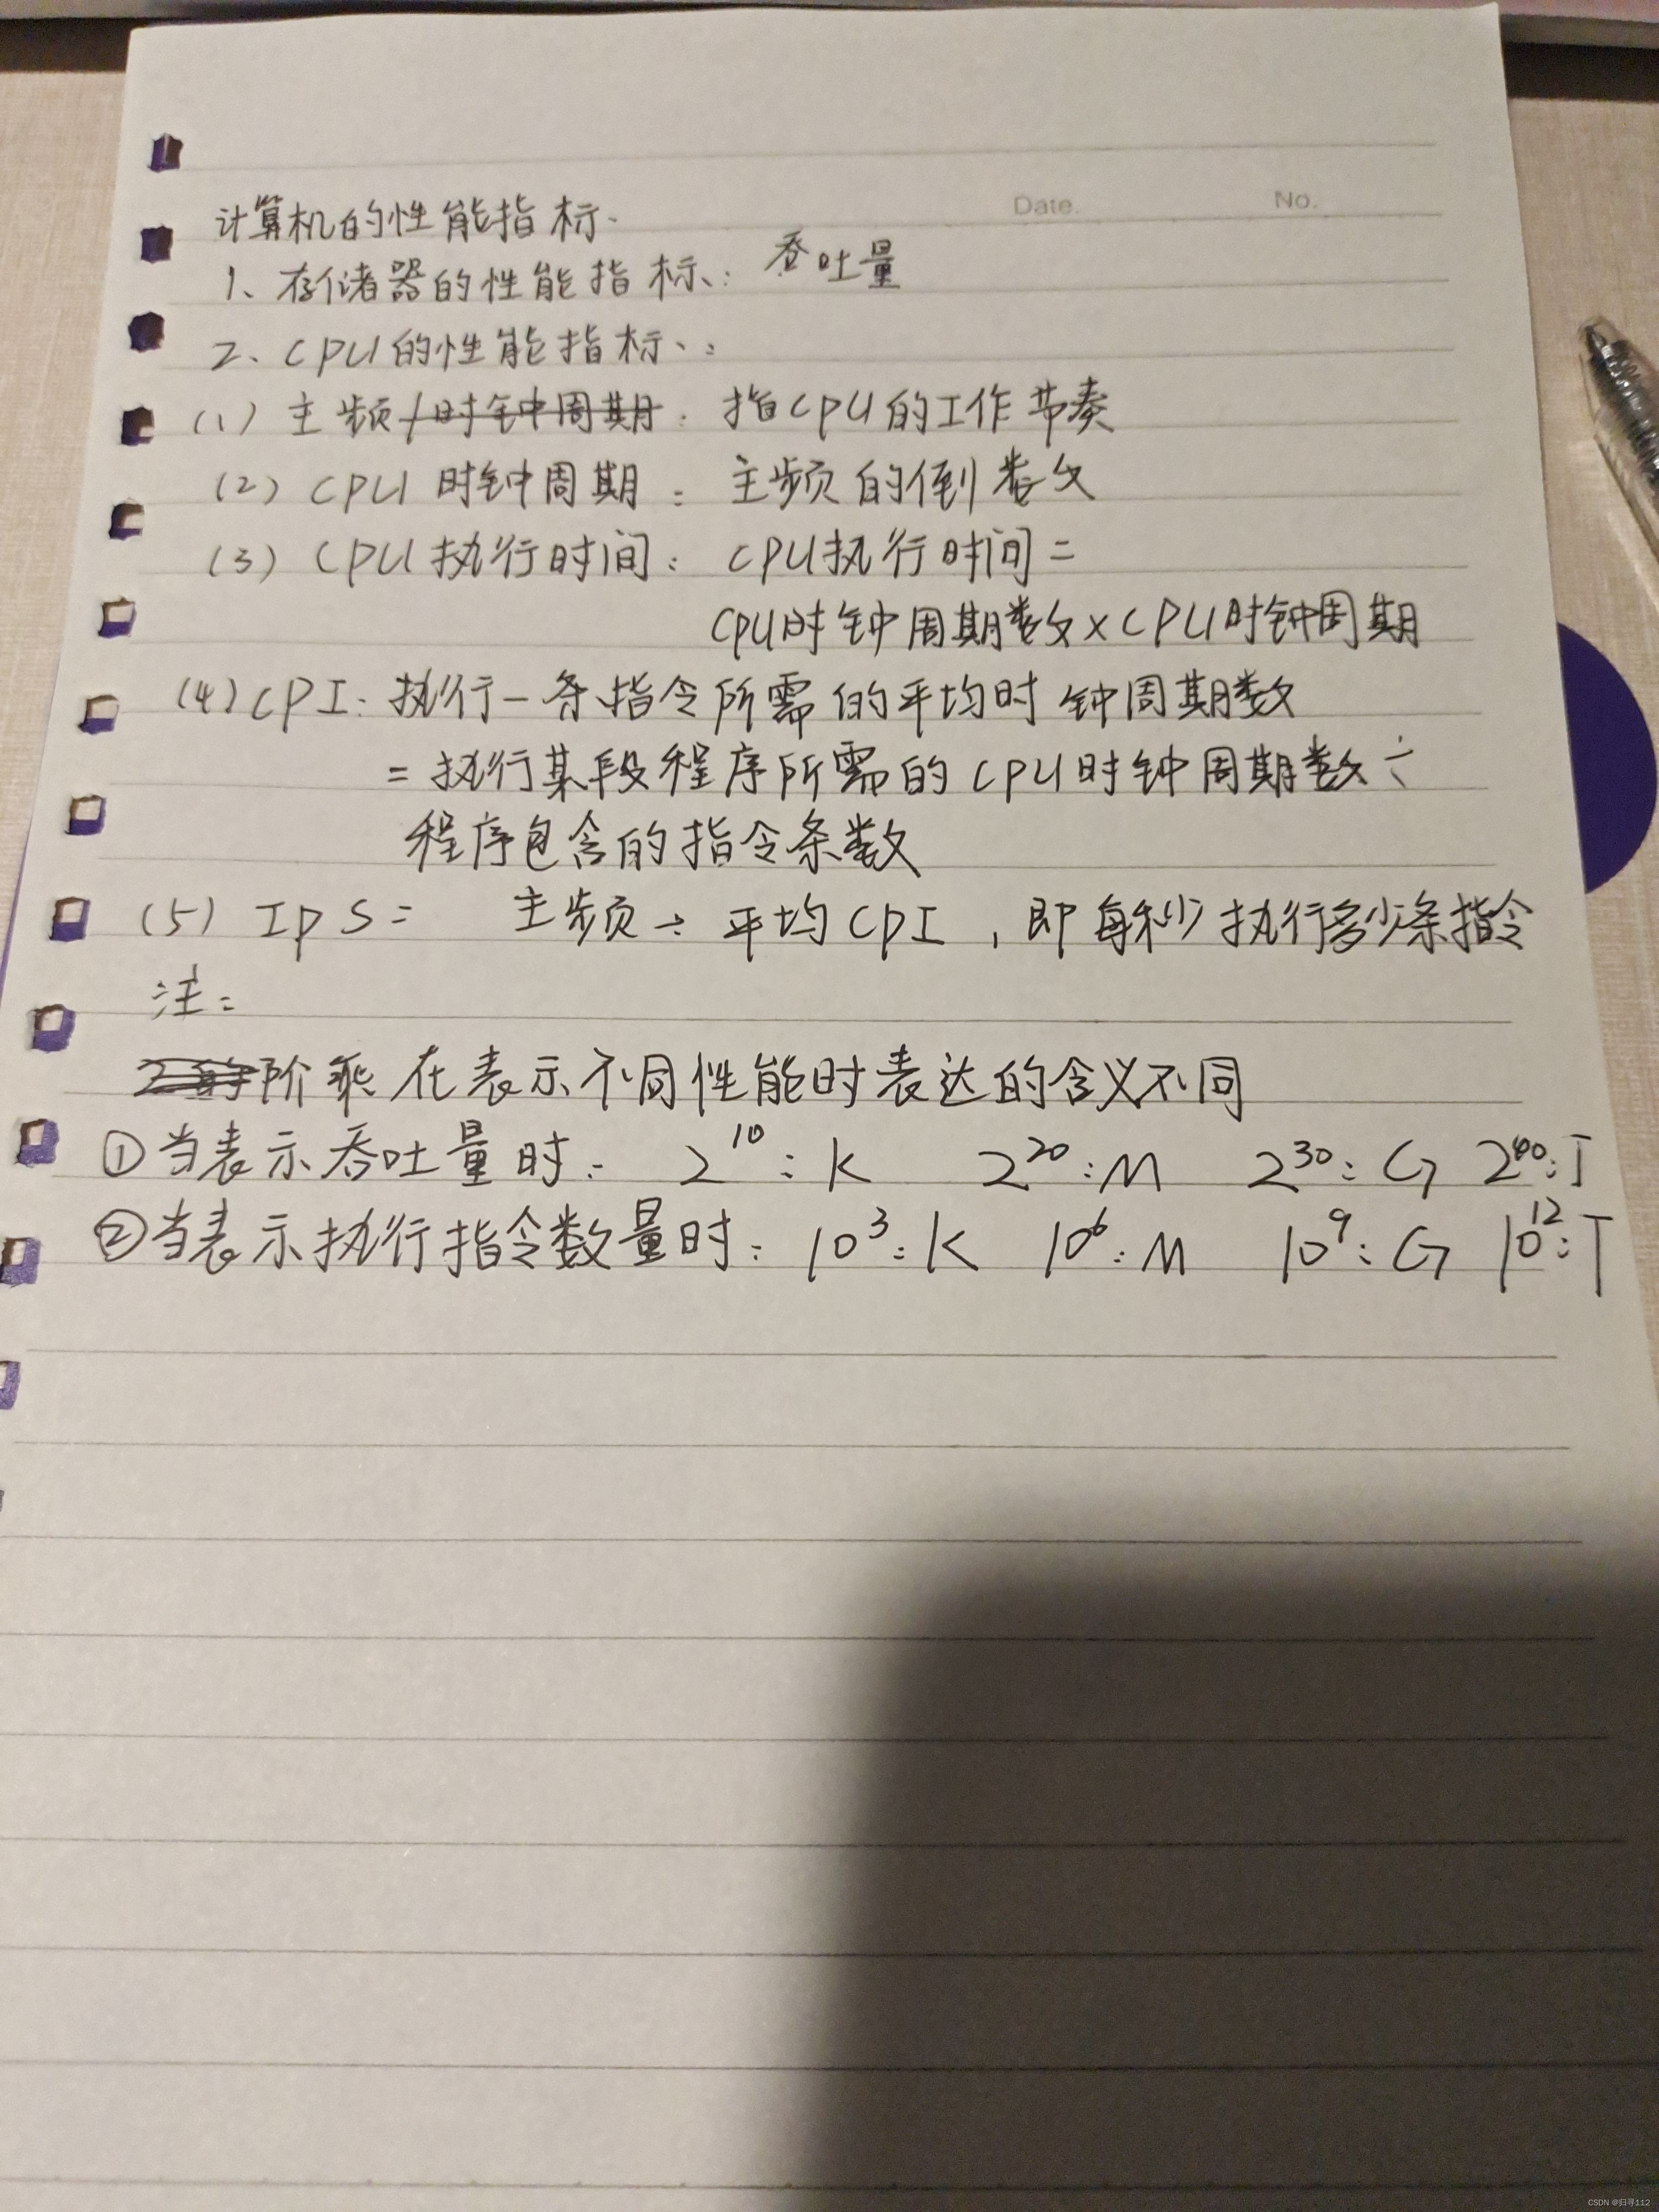 Date. No.
计算机的性能指标.
1、存储器的性能指标、: 吞吐量
2、CPU的性能指标、:
(1) 主频/时钟周期: 指CPU的工作节奏
(2) CPU 时钟周期: 主频的倒数
(3) CPU执行时间: CPU执行时间=
CPU时钟周期数×CPU时钟周期
(4) CPI: 执行一条指令所需的平均时钟周期数
= 执行某段程序所需的CPU时钟周期数÷
程序包含的指令条数
(5) IPS= 主频÷平均CPI,即每秒执行多少条指令
注:
阶乘在表示不同性能时表达的含义不同
①当表示吞吐量时: 2^10:K 2^20:M 2^30:G 2^40:T
②当表示执行指令数量时: 10^3:K 10^6:M 10^9:G 10^12:T
CSDN @归寻112